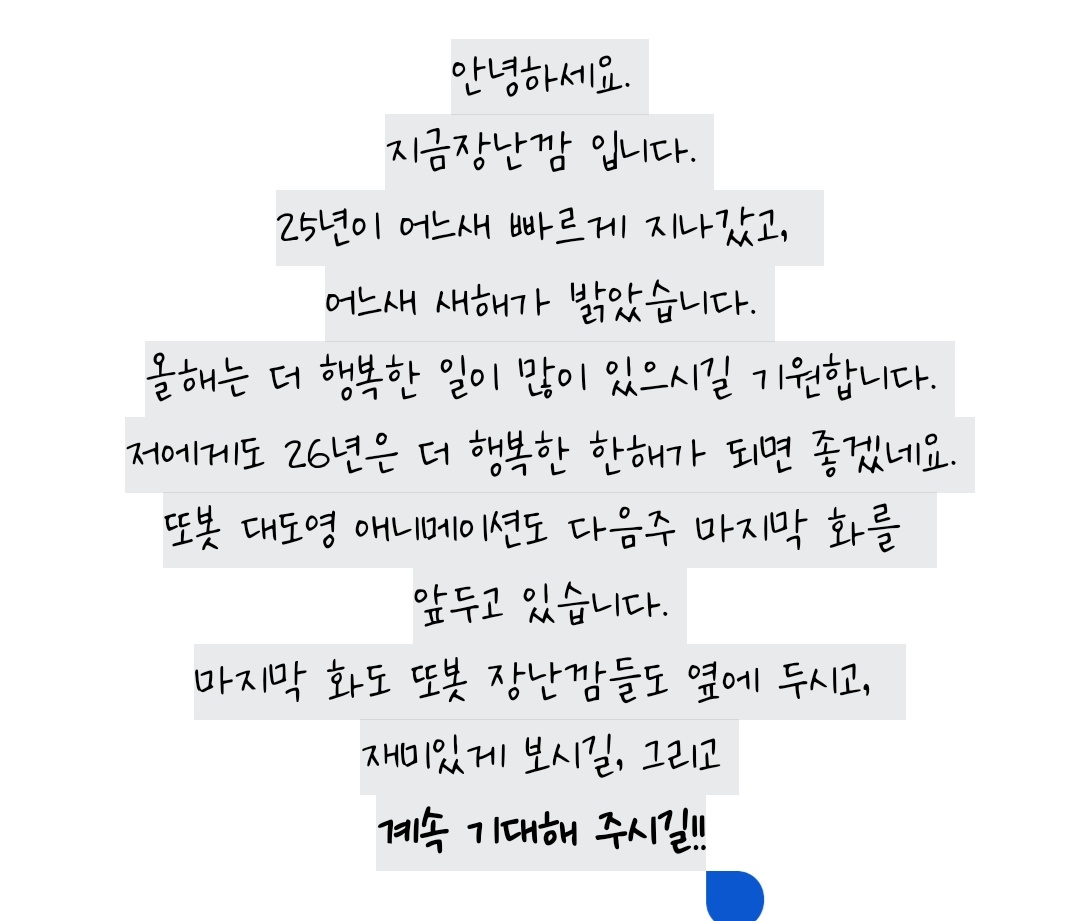 안녕하세요.
지금장난깜 입니다.
25년이 어느새 빠르게 지나갔고,
어느새 새해가 밝았습니다.
올해는 더 행복한 일이 많이 있으시길 기원합니다.
저에게도 26년은 더 행복한 한해가 되면 좋겠네요.
또봇 대도영 애니메이션도 다음주 마지막 화를
앞두고 있습니다.
마지막 화도 또봇 장난깜들도 옆에 두시고,
재미있게 보시길, 그리고
계속 기대해 주시길!!